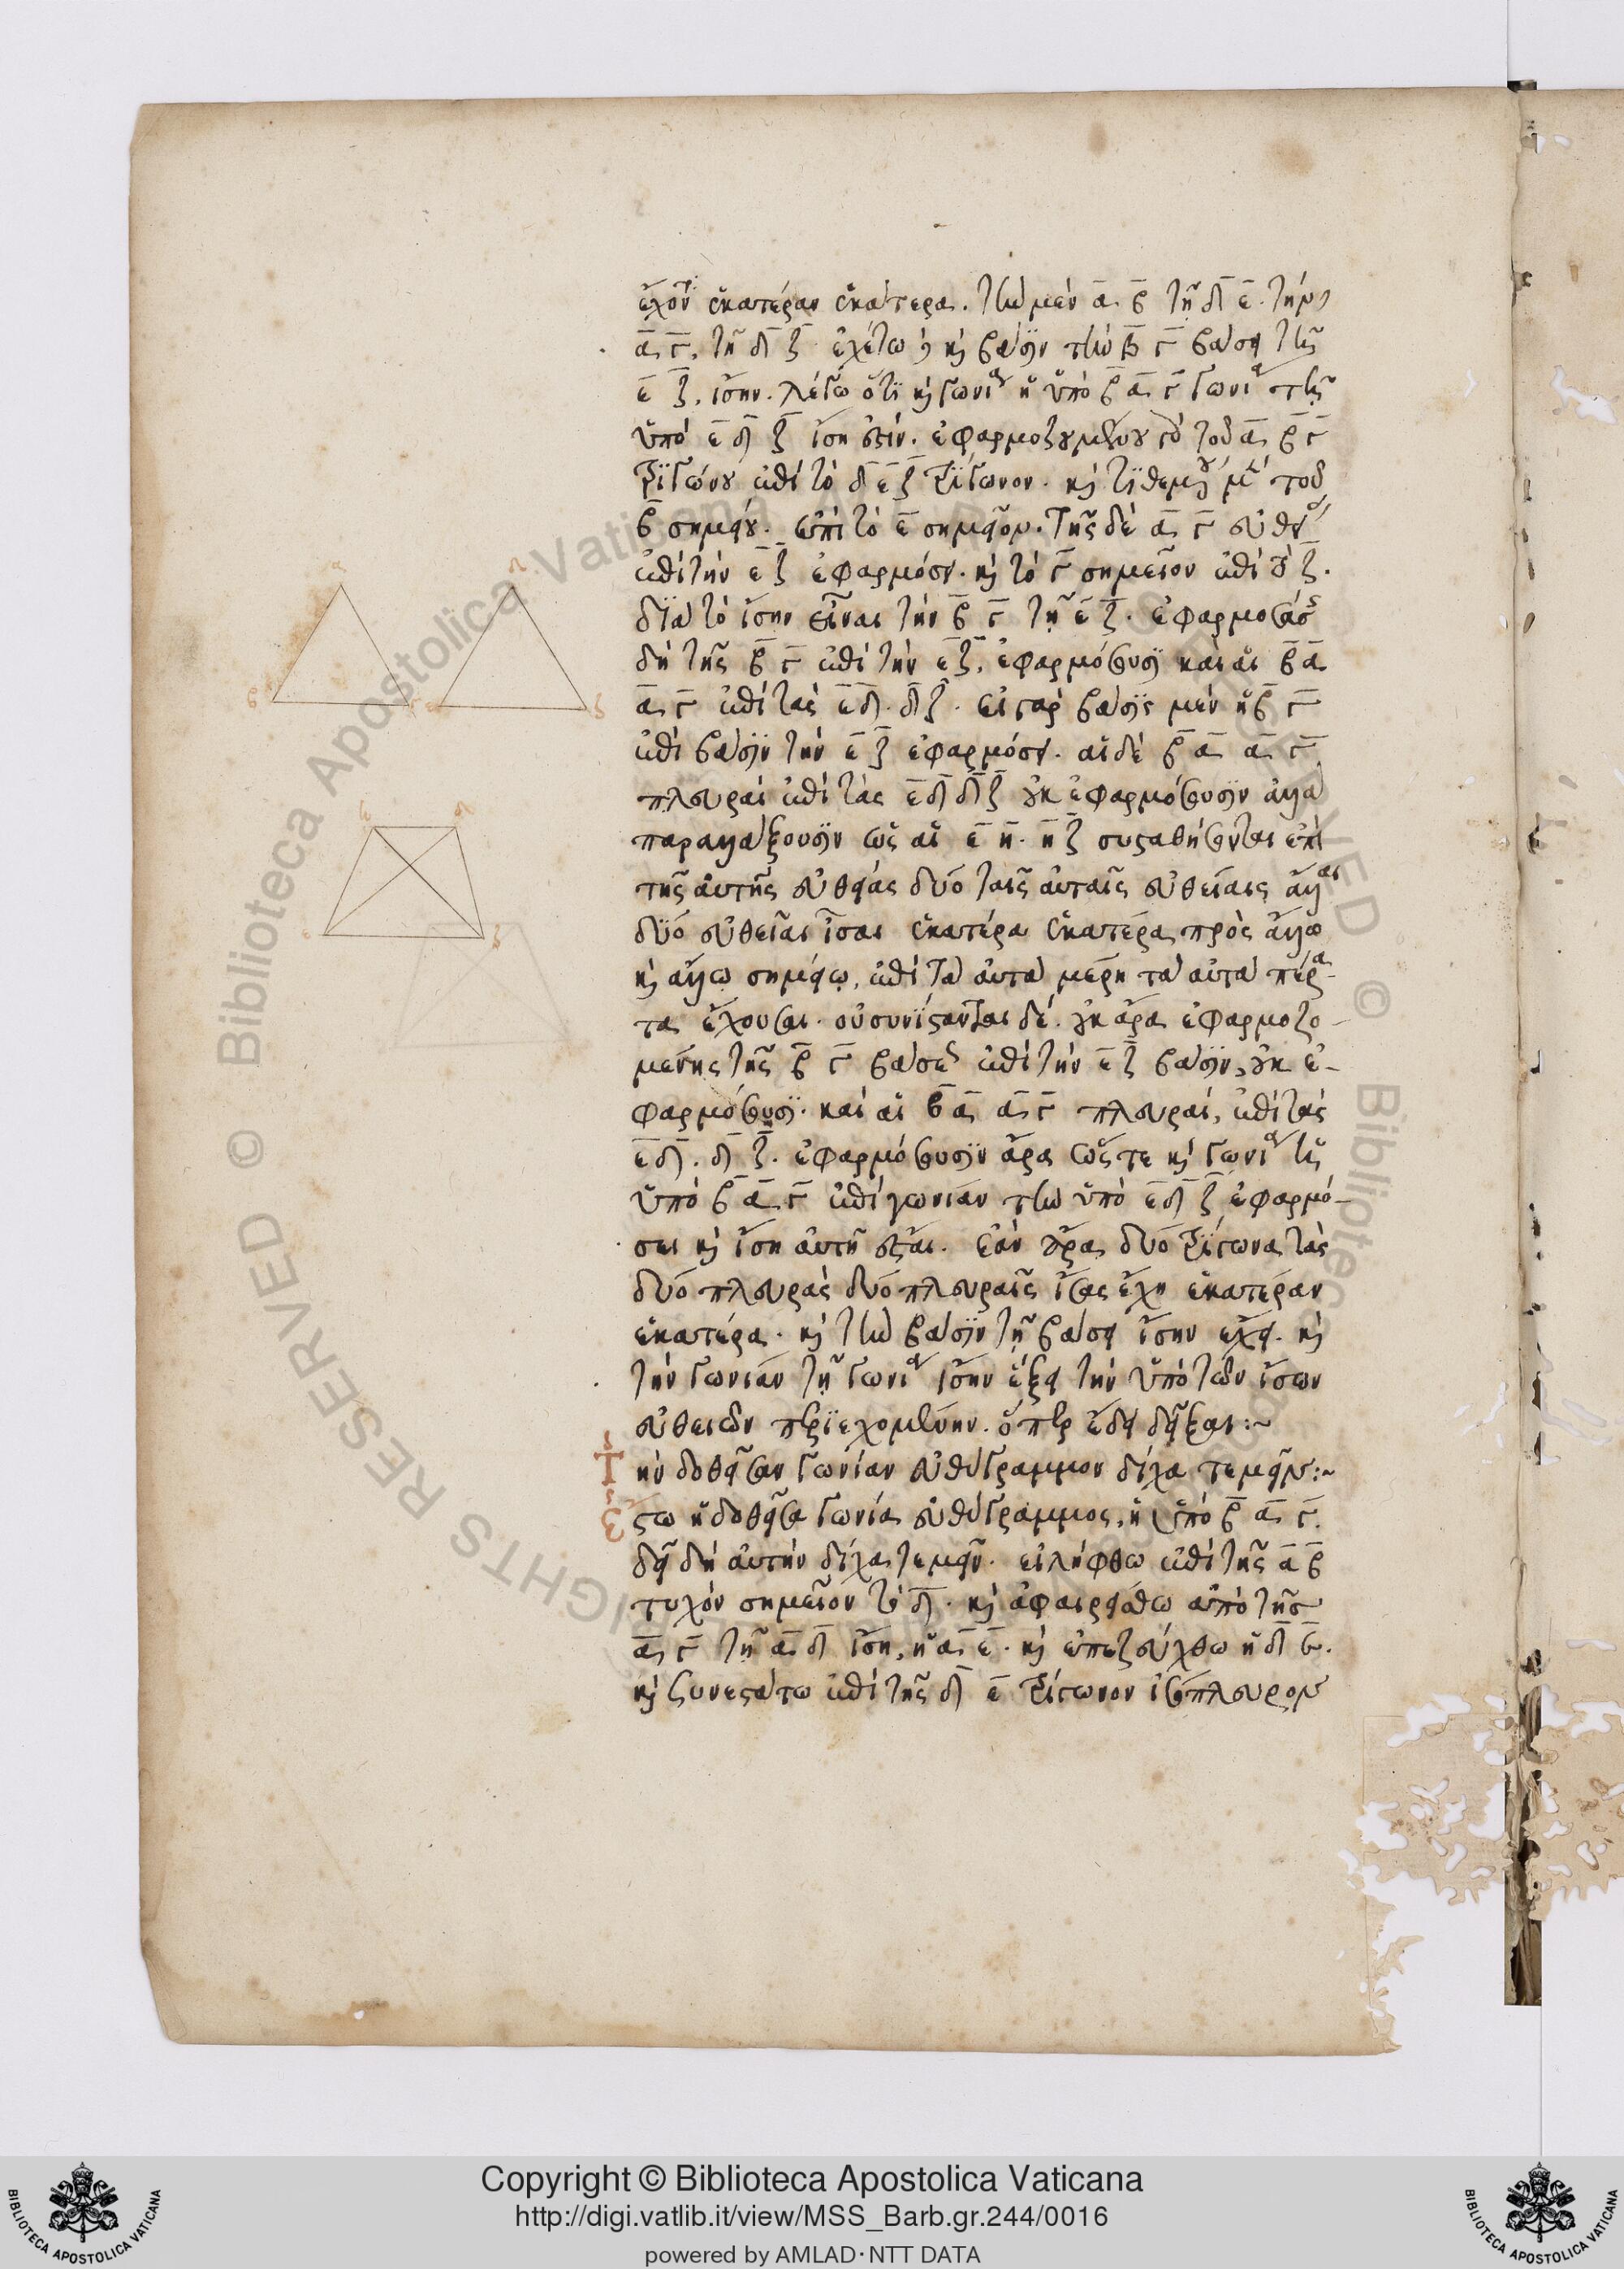 ἔχον ἑκατέραν ἑκατέρα. τὴν μὲν α β τῆ δ ε. τὴν
α γ, τῆ δ ζ ἐχέτω δὲ καὶ βάσιν τὴν β γ βάσει τῆ
ε ζ, ἴσην. λέγω ὅτι καὶ γωνία ἡ ὑπὸ β α γ γωνία τῆ
ὑπὸ ε δ ζ ἴση ἐστίν. ἐφαρμοζομένου γὰρ τοῦ α β γ
τριγώνου ἐπὶ τὸ δ ε ζ τρίγωνον. καὶ τιθεμένου μὲν τοῦ
β σημείου. ἐπὶ τὸ ε σημεῖον. τῆς δὲ α γ εὐθείας
ἐπὶ τὴν ε ζ ἐφαρμόσει. καὶ τὸ γ σημεῖον ἐπὶ τὸ ζ.
διὰ τὸ ἴσην εἶναι τὴν β γ τῆ ε ζ. ἐφαρμοσάσης
δὴ τῆς β γ ἐπὶ τὴν ε ζ, ἐφαρμόσουσι καὶ αἱ β α
α γ ἐπὶ τὰς ε δ. δ ζ. εἰ γὰρ βάσις μὲν ἡ β γ
ἐπὶ βάσιν τὴν ε ζ ἐφαρμόσει. αἱ δὲ β α α γ
πλευραὶ ἐπὶ τὰς ε δ δ ζ οὐκ ἐφαρμόσουσιν ἀλλὰ
παραλλάξουσιν ὡς αἱ ε η. η ζ συσταθήσονται ἐπὶ
τῆς αὐτῆς εὐθείας δύο ταῖς αὐταῖς εὐθείαις ἄλλαι
δύο εὐθεῖαι ἴσαι ἑκατέρα ἑκατέρα πρὸς ἄλλω
καὶ ἄλλω σημείω, ἐπὶ τὰ αὐτὰ μέρη τὰ αὐτὰ πέρα-
τα ἔχουσαι. οὐ συνίστανται δέ. οὐκ ἄρα ἐφαρμοζο-
μένης τῆς β γ βάσεως ἐπὶ τὴν ε ζ βάσιν, οὐκ ἐ-
φαρμόσουσι. καὶ αἱ β α α γ πλευραί, ἐπὶ τὰς
ε δ. δ ζ. ἐφαρμόσουσιν ἄρα ὥστε καὶ γωνία ἡ
ὑπὸ β α γ ἐπὶ γωνίαν τὴν ὑπὸ ε δ ζ ἐφαρμό-
σει καὶ ἴση αὐτῆ ἔσται. ἐὰν ἄρα δύο τρίγωνα τὰς
δύο πλευρὰς δύο πλευραῖς ἴσας ἔχη ἑκατέραν
ἑκατέρα. καὶ τὴν βάσιν τῆ βάσει ἴσην ἔχει. καὶ
τὴν γωνίαν τῆ γωνία ἴσην ἕξει τὴν ὑπὸ τῶν ἴσων
εὐθειῶν περιεχομένην. ὅπερ ἔδει δεῖξαι:~
Τὴν δοθεῖσαν γωνίαν εὐθύγραμμον δίχα τεμεῖν:~
Ἔστω ἡ δοθεῖσα γωνία εὐθύγραμμος, ἡ ὑπὸ β α γ.
δεῖ δὴ αὐτὴν δίχα τεμεῖν. εἰλήφθω ἐπὶ τῆς α β
τυχὸν σημεῖον τὸ δ. καὶ ἀφαιρείσθω ἀπὸ τῆς
α γ τῆ α δ ἴση, ἡ α ε. καὶ ἐπεζεύχθω ἡ δ ε.
καὶ συνεστάτω ἐπὶ τῆς δ ε τρίγωνον ἰσόπλευρον
Copyright © Biblioteca Apostolica Vaticana
http://digi.vatlib.it/view/MSS_Barb.gr.244/0016
powered by AMLAD·NTT DATA